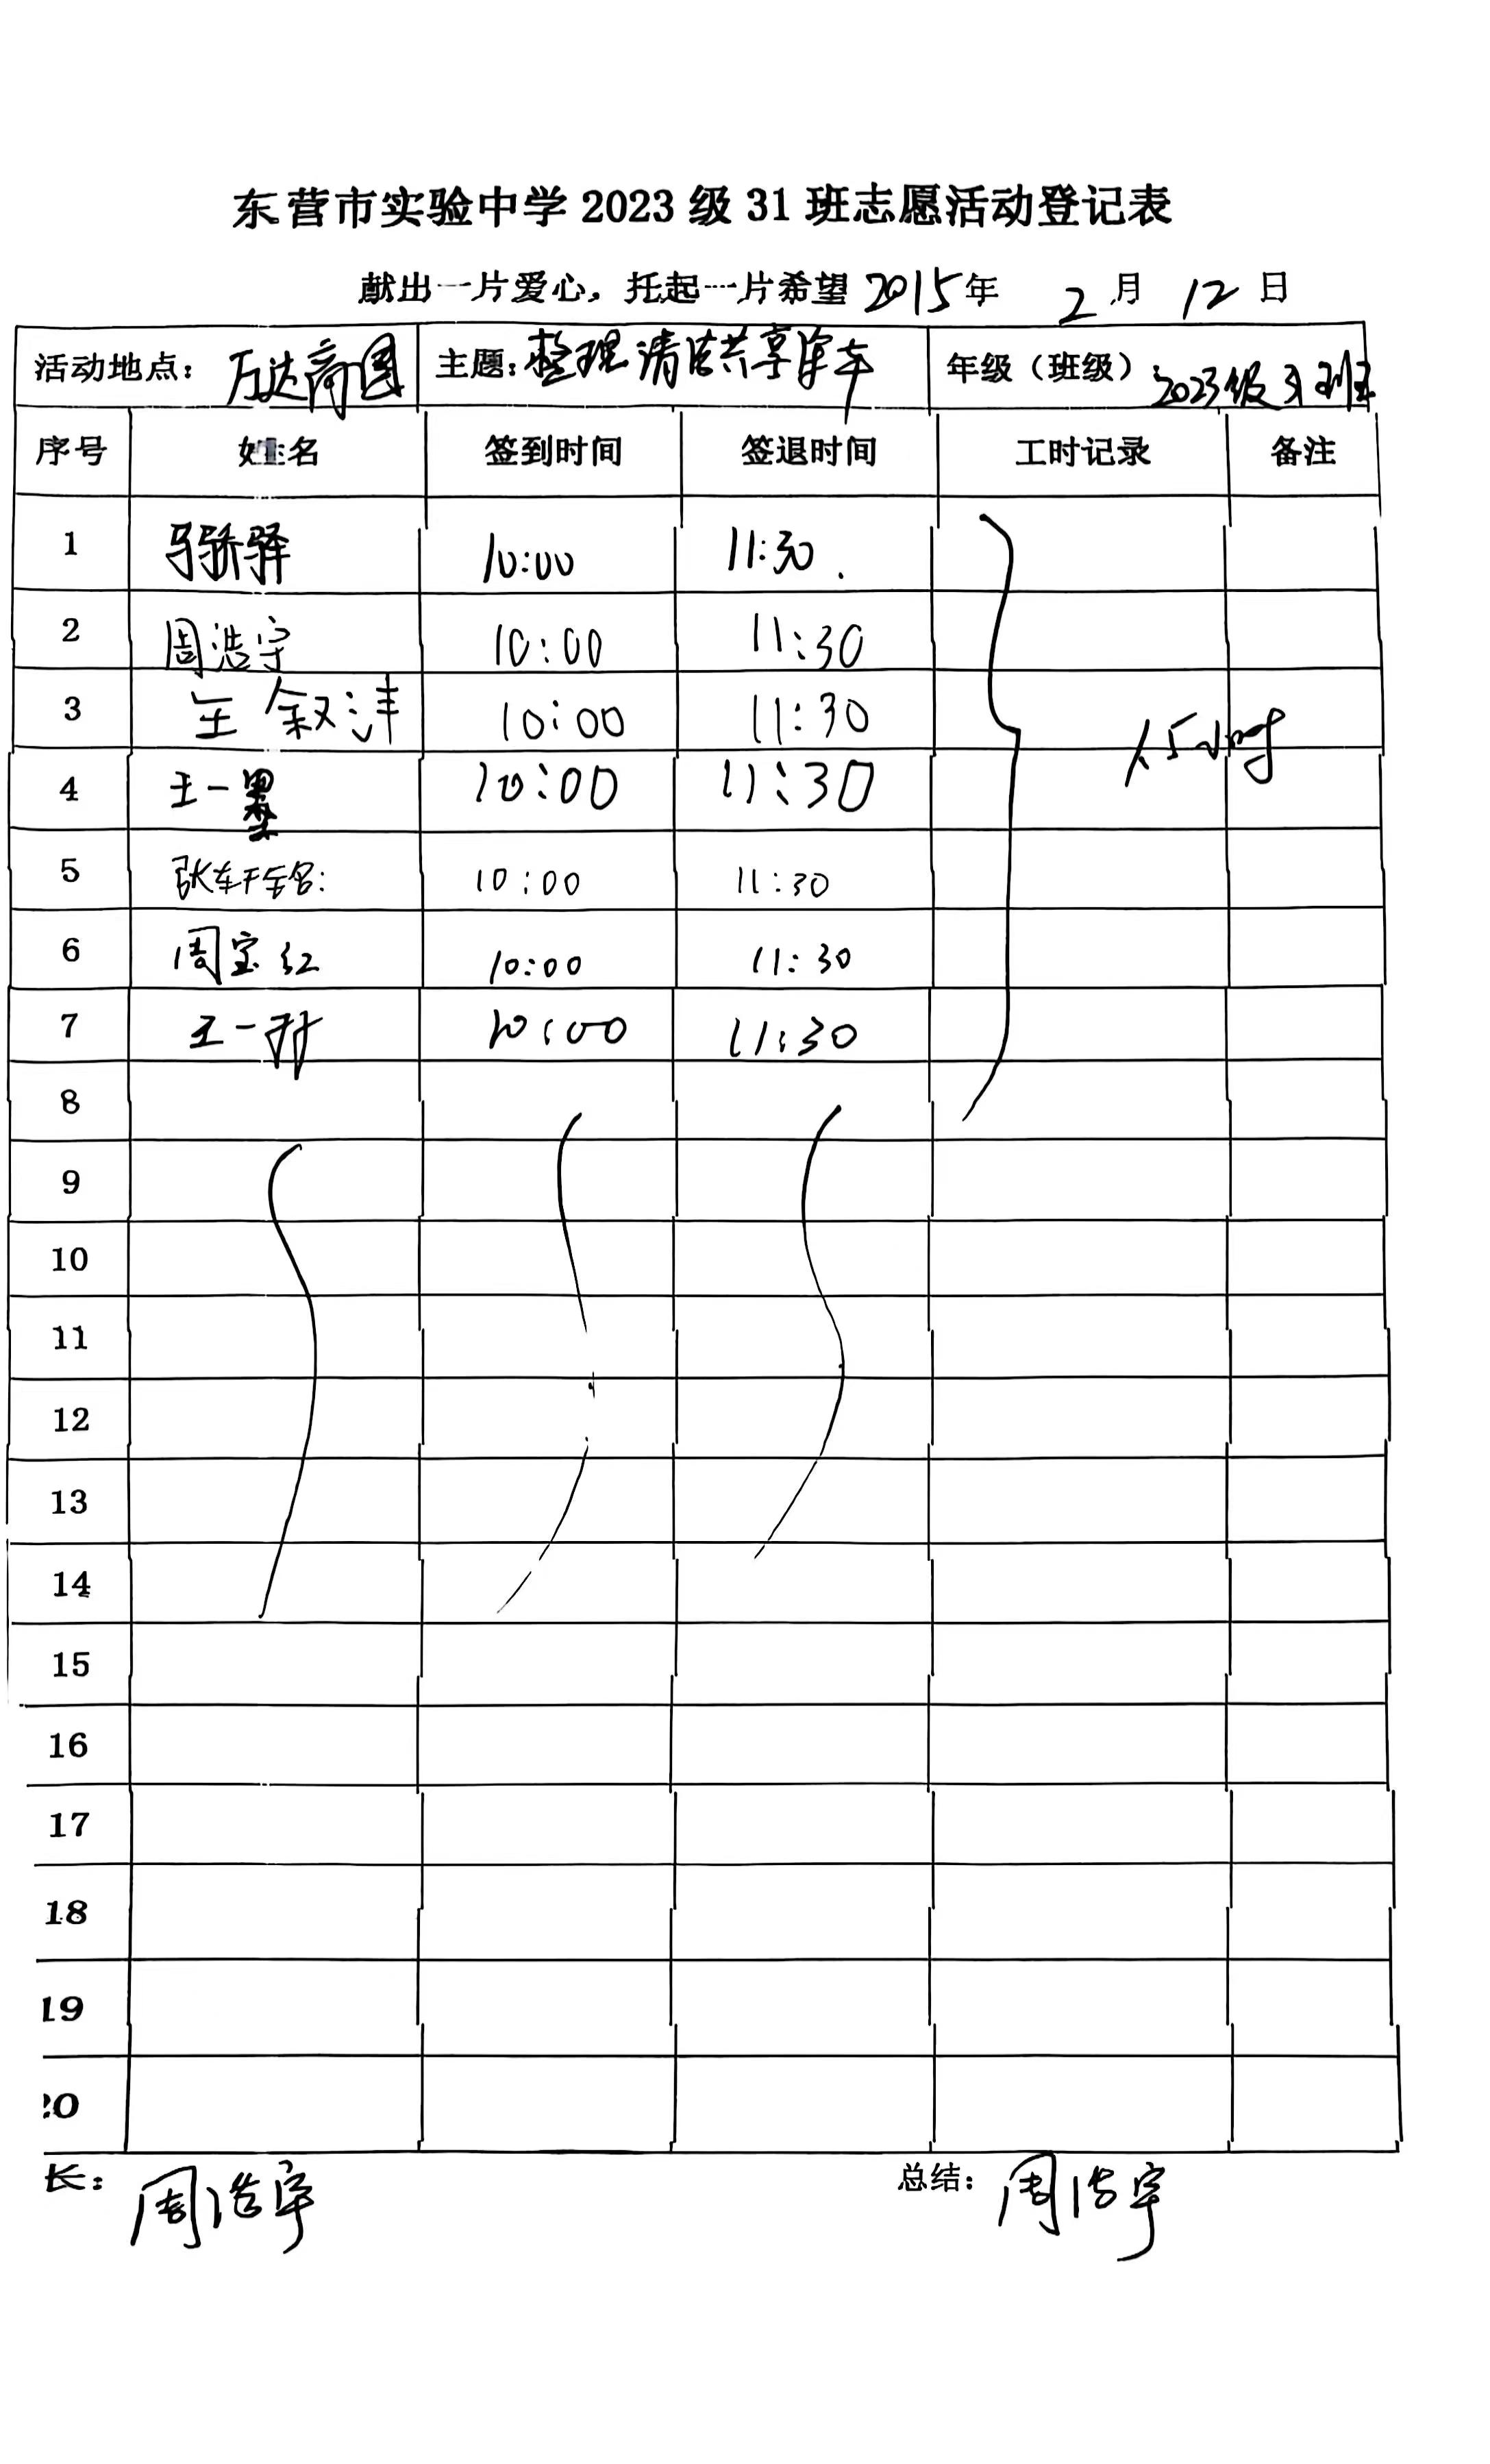 东营市实验中学 2023 级 31 班志愿活动登记表
献出一片爱心，托起一片希望 2015年 2 月 12 日
活动地点： 万达商圈 主题：整理清洁共享单车 年级（班级） 2023级31班
序号 姓名 签到时间 签退时间 工时记录 备注
1 马骄驿 10:00 11:30
2 周浩宇 10:00 11:30
3 王叙沣 10:00 11:30
1.5小时
4 王一墨 10:00 11:30
5 10:00 11:30
6 周宝红 10:00 11:30
7 王一 10:00 11:30
8
9
10
11
12
13
14
15
16
17
18
19
20
长： 周浩宇 总结： 周浩宇